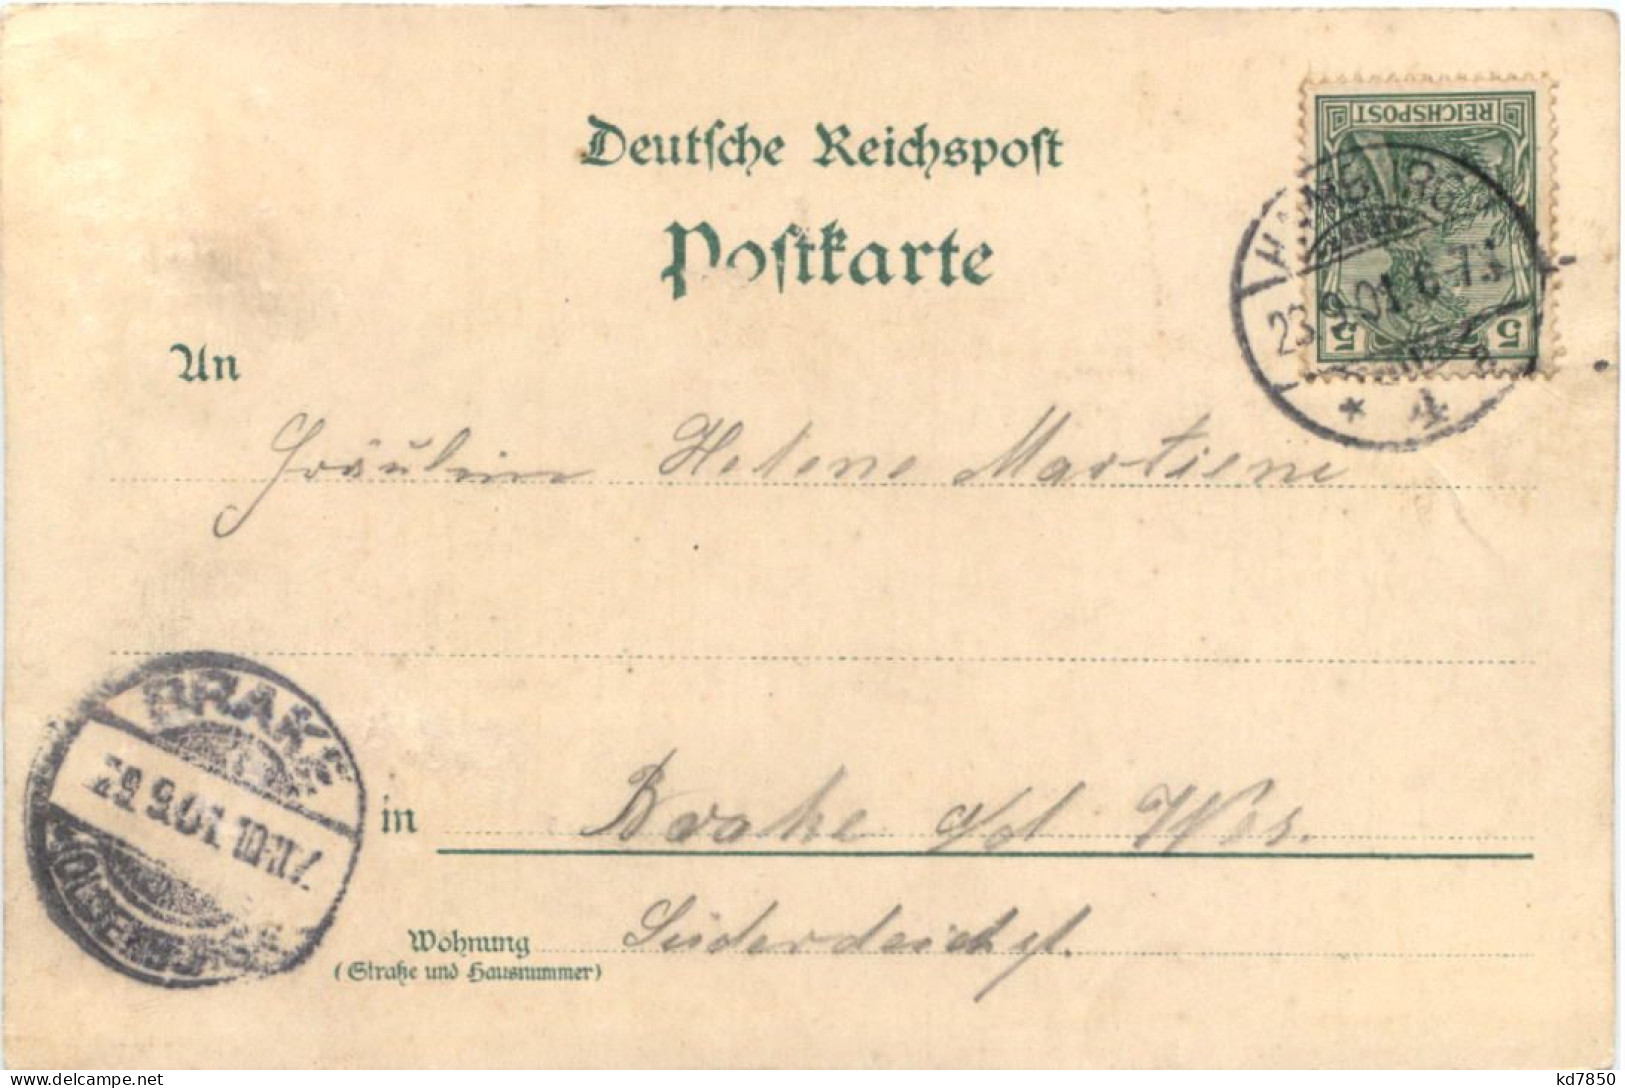 Deutsche Reichspost
Postkarte
REICHSPOST
5 5
HAMBURG
23.9.01.6-7
* 4
An
Fräulein Helene Martiens
BRAKE
29.9.01.10-11
(OLDENBURG)
in Brake a/d Wes.
Wohnung
(Straße und Hausnummer)
kd7850